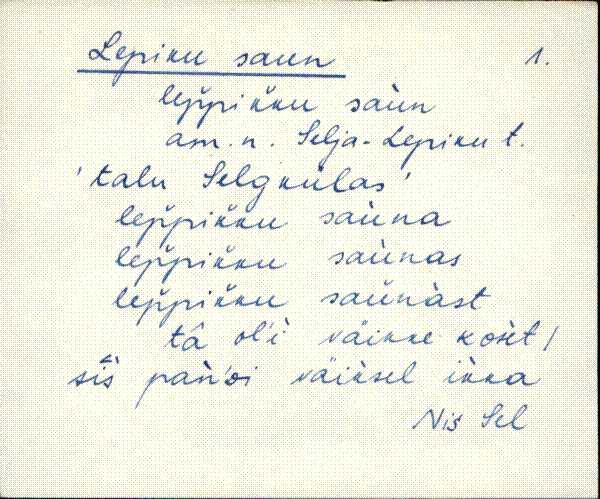 Lepiku saun 1.
lep̆pik̆ku saùn
am. n. Selja-Lepiku t.
'talu Selgkülas'
lep̆pik̆ku saùna
lep̆pik̆ku saùnas
lep̆pik̆ku saùnàst
tâ ol'ì väikke kosìt/
siìs pàǹ'di väiksel ìkka
Nis Sel